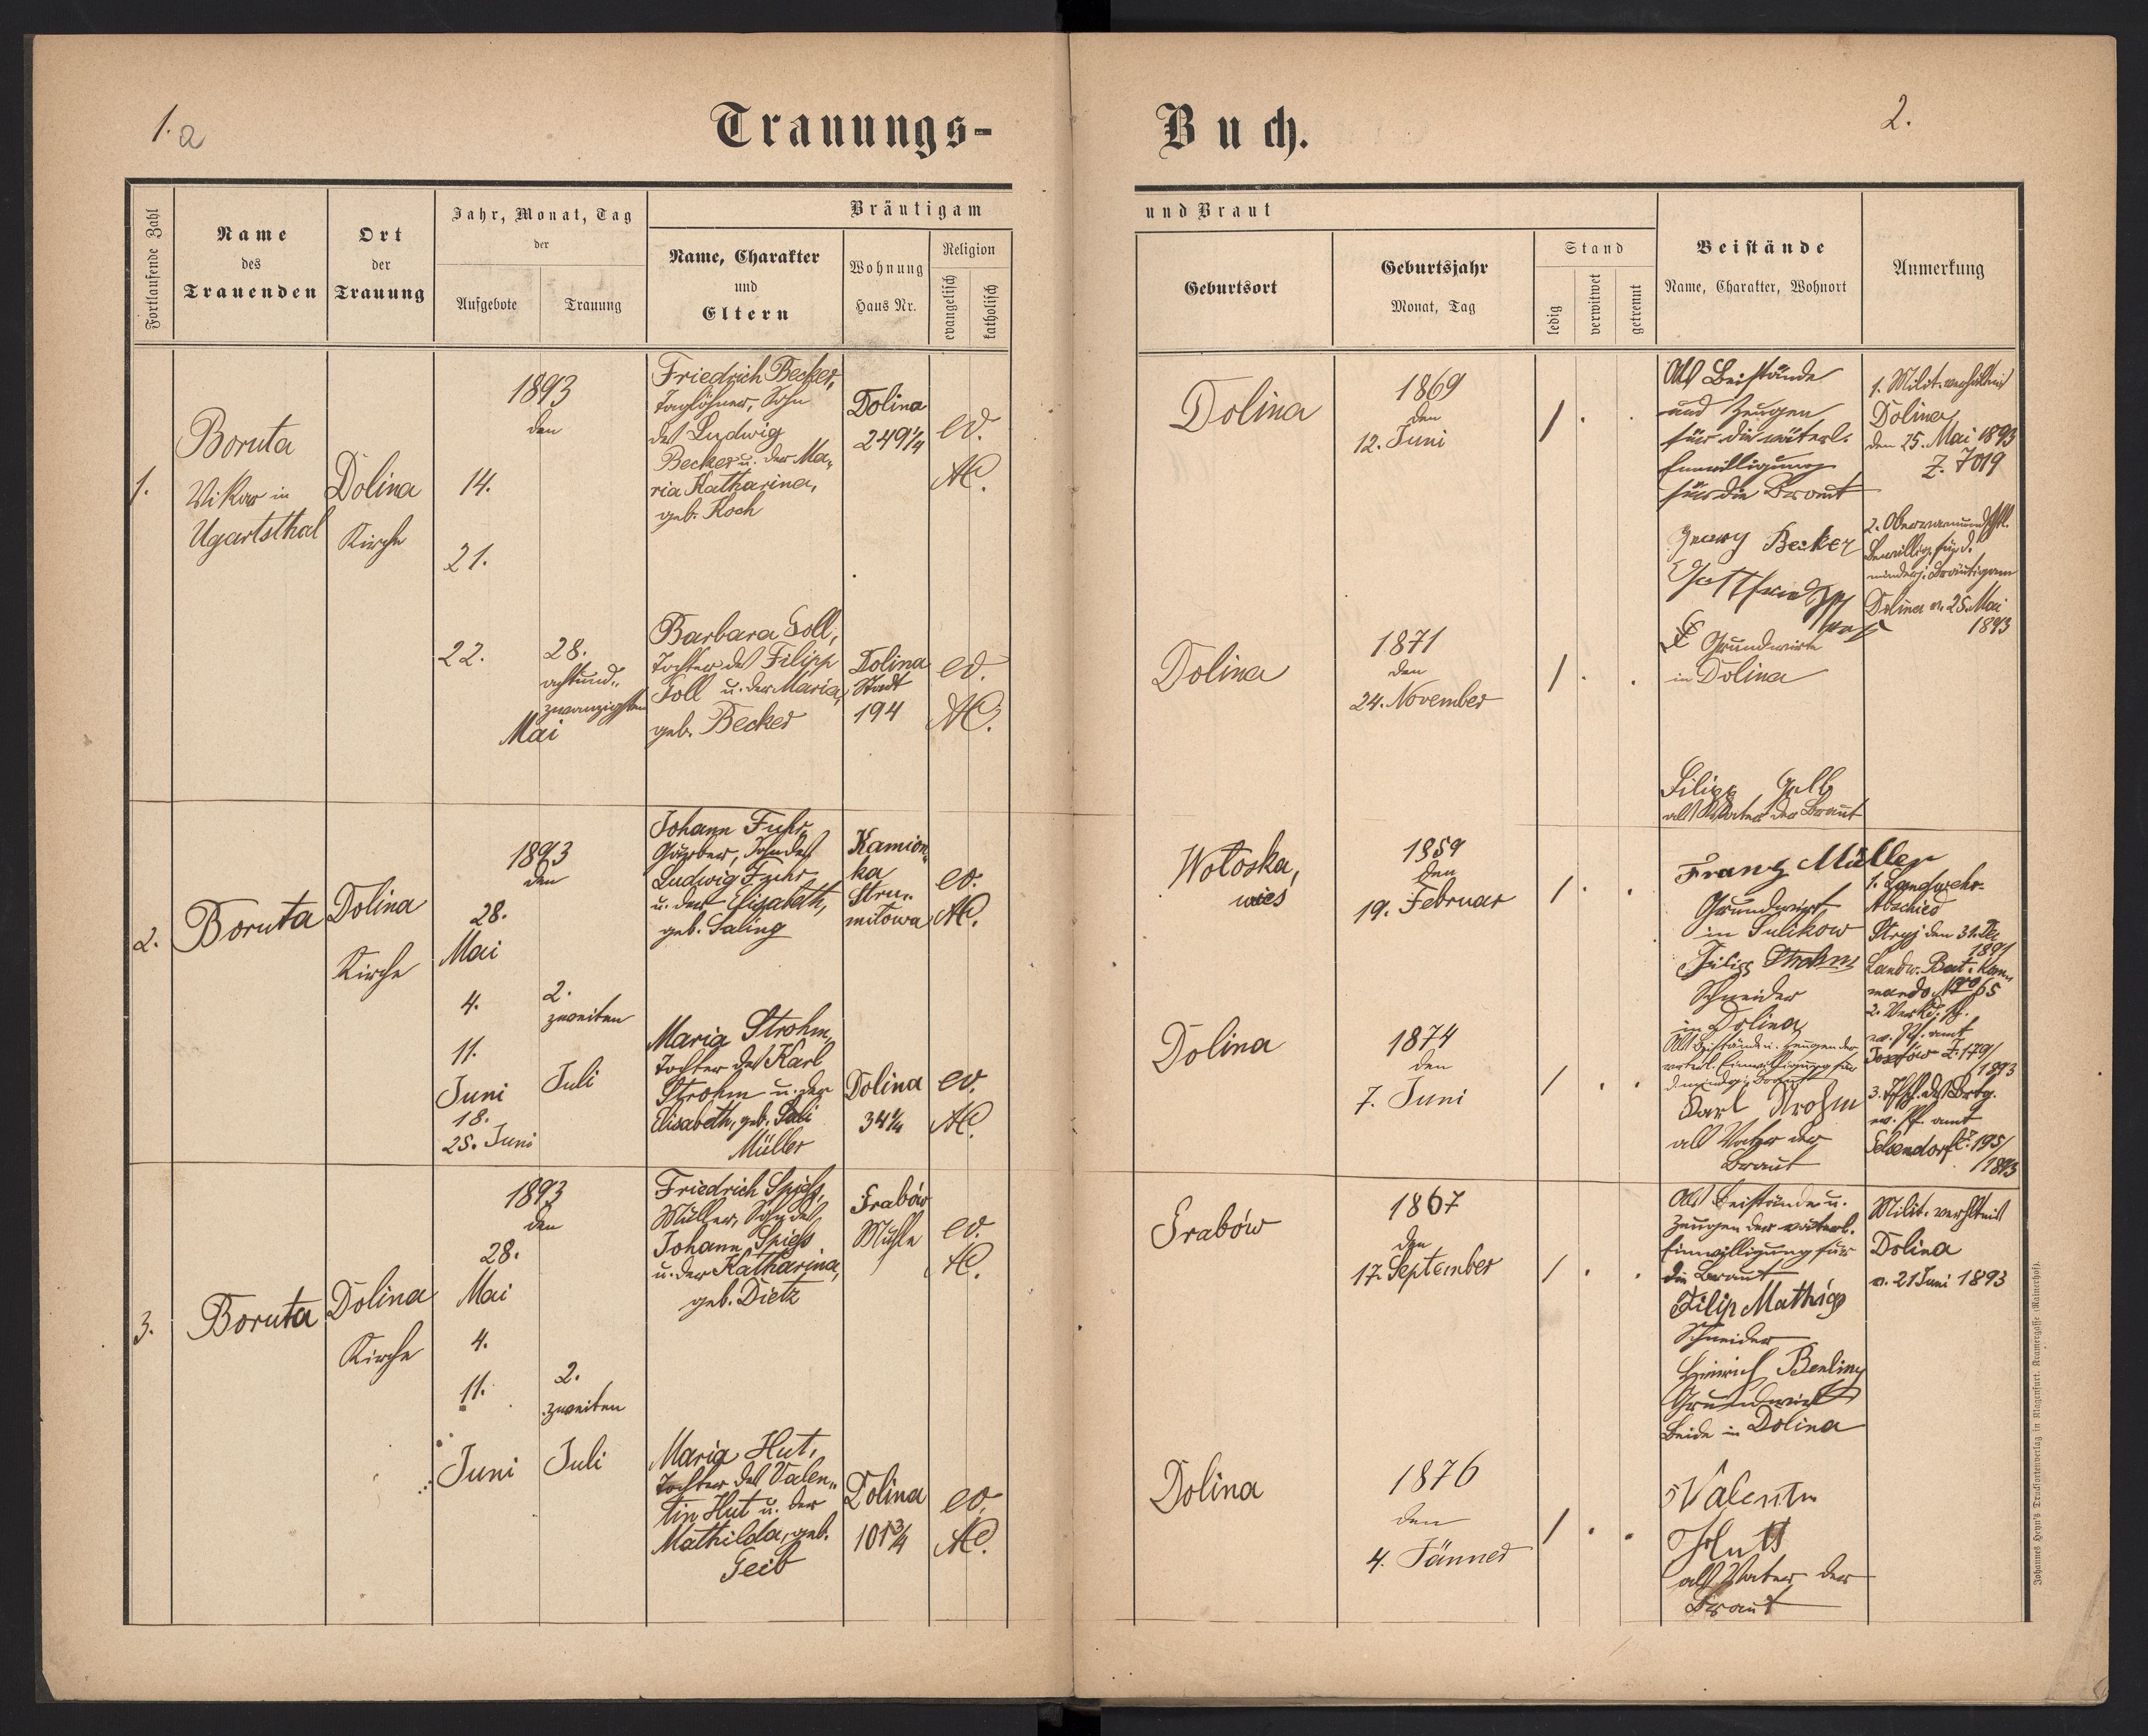 1. a
Trauungs-
Buch.
2.
Fortlaufende Zahl
Name
des
Trauenden
Ort
der
Trauung
Jahr, Monat, Tag
der
Aufgebote
Trauung
Bräutigam
Name, Charakter
und
Eltern
Wohnung
Haus Nr.
Religion
evangelisch
katholisch
und Braut
Geburtsort
Geburtsjahr
Monat, Tag
Stand
ledig
verwitwet
getrennt
Beistände
Name, Charakter, Wohnort
Anmerkung
1.
Boruta
Vikar in
Ugartsthal
Dolina
Kirche
1893
den
14.
21.
22.
28.
achtund„
zwanzigsten
Mai
Friedrich Becker,
Taglöhner, Sohn
des Ludwig
Becker u. der Ma„
ria Katharina,
geb. Koch
Dolina
249 1/4
ev.
AC.
Barbara Goll,
Tochter des Filipp
Goll u. der Maria,
geb. Becker
Dolina
Stadt
194
ev.
AC.
Dolina
1869
den
12. Juni
Dolina
1871
den
24. November
Als Beistände
und Zeugen
für die väterl.
Einwilligung
für die Braut
Georg Becker
Grundwirte
in Dolina
Filipp Goll
als Vater der Braut
1. Milit. verhältnis
Dolina,
den 25. Mai 1893
Z. 7019
2. Obervormundschftl.
Bewillig. für d.
minderj. Bräutigam
Dolina v. 25. Mai
1893
2.
Boruta
Dolina
Kirche
1893
den
28.
Mai
4.
11.
Juni
18.
25. Juni
2.
zweiten
Juli
Johann Fuhr,
Gärber, Sohn des
Ludwig Fuhr
u. der Elisabeth,
geb. Saling
Kamion„
ka
Stru„
miłowa
ev.
AC.
Maria Strohm,
Tochter des Karl
Strohm u. der
Elisabeth, geb.
Müller
Dolina
34 1/4
ev.
AC.
Wołoska,
wies
1859
den
19. Februar
Dolina
1874
den
7. Juni
Franz Müller
Grundwirt
in Sulikow
Filipp Strohm
Schneider
in Dolina
Als Beistände u. Zeugen der
väterl. Einwilligung für
d. minderj. Braut
Karl Strohm
als Vater der
Braut
1. Landwehr-
Abschied
Stryj den 31. Dez
1891
Landw. Bat. Kom„
mando No 65
2. Verkd. sch.
ev. Pf. amt
Josefów Z. 179/
1893
3. Tfsch. des Brtg.
ev. Pf. amt
Gelsendorf Z. 195/
1893
3.
Boruta
Dolina
Kirche
1893
den
28.
Mai
4.
11.
Juni
2.
zweiten
Juli
Friedrich Spiess,
Müller, Sohn des
Johann Spiess
u. der Katharina,
geb. Dietz
Grabów
Mühle
ev.
AC.
Maria Hut,
Tochter des Valen„
tin Hut u. der
Mathilda, geb.
Geib
Dolina
101 3/4
ev.
AC.
Grabów
1867
den
17. September
Dolina
1876
den
4. Jänner
Als Beistände u.
Zeugen der väterl.
Einwilligung für
die Braut
Filip Mathias
Schneider
Heinrich Benling
Grundwirt
beide in Dolina
Valentin
Hutt
als Vater der
Braut
Milit. verhltnis
Dolina
v. 21 Juni 1893
Johannes Heyn's Drucksortenverlag in Klagenfurt. Kramergasse (Rainerhof).